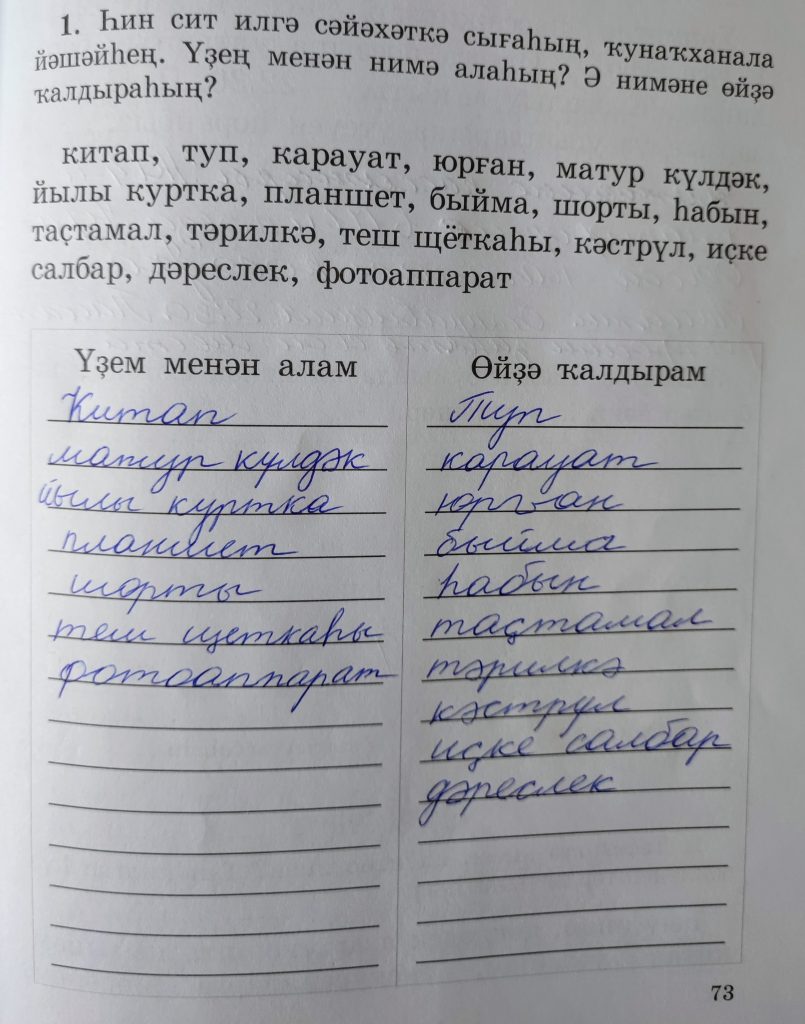 1. Һин сит илгә сәйәхәткә сығаһың, ҡунаҡханала
йәшәйһең. Үҙең менән нимә алаһың? Ә нимәне өйҙә
ҡалдыраһың?
китап, туп, карауат, юрған, матур күлдәк,
йылы куртка, планшет, быйма, шорты, һабын,
таҫтамал, тәрилкә, теш щёткаһы, кәстрүл, иҫке
салбар, дәреслек, фотоаппарат
Үҙем менән алам
Китап
матур күлдәк
йылы куртка
планшет
шорты
теш щеткаһы
фотоаппарат
Өйҙә ҡалдырам
Туп
карауат
юрған
быйма
һабын
таҫтамал
тәрилкә
кәстрүл
иҫке салбар
дәреслек
73